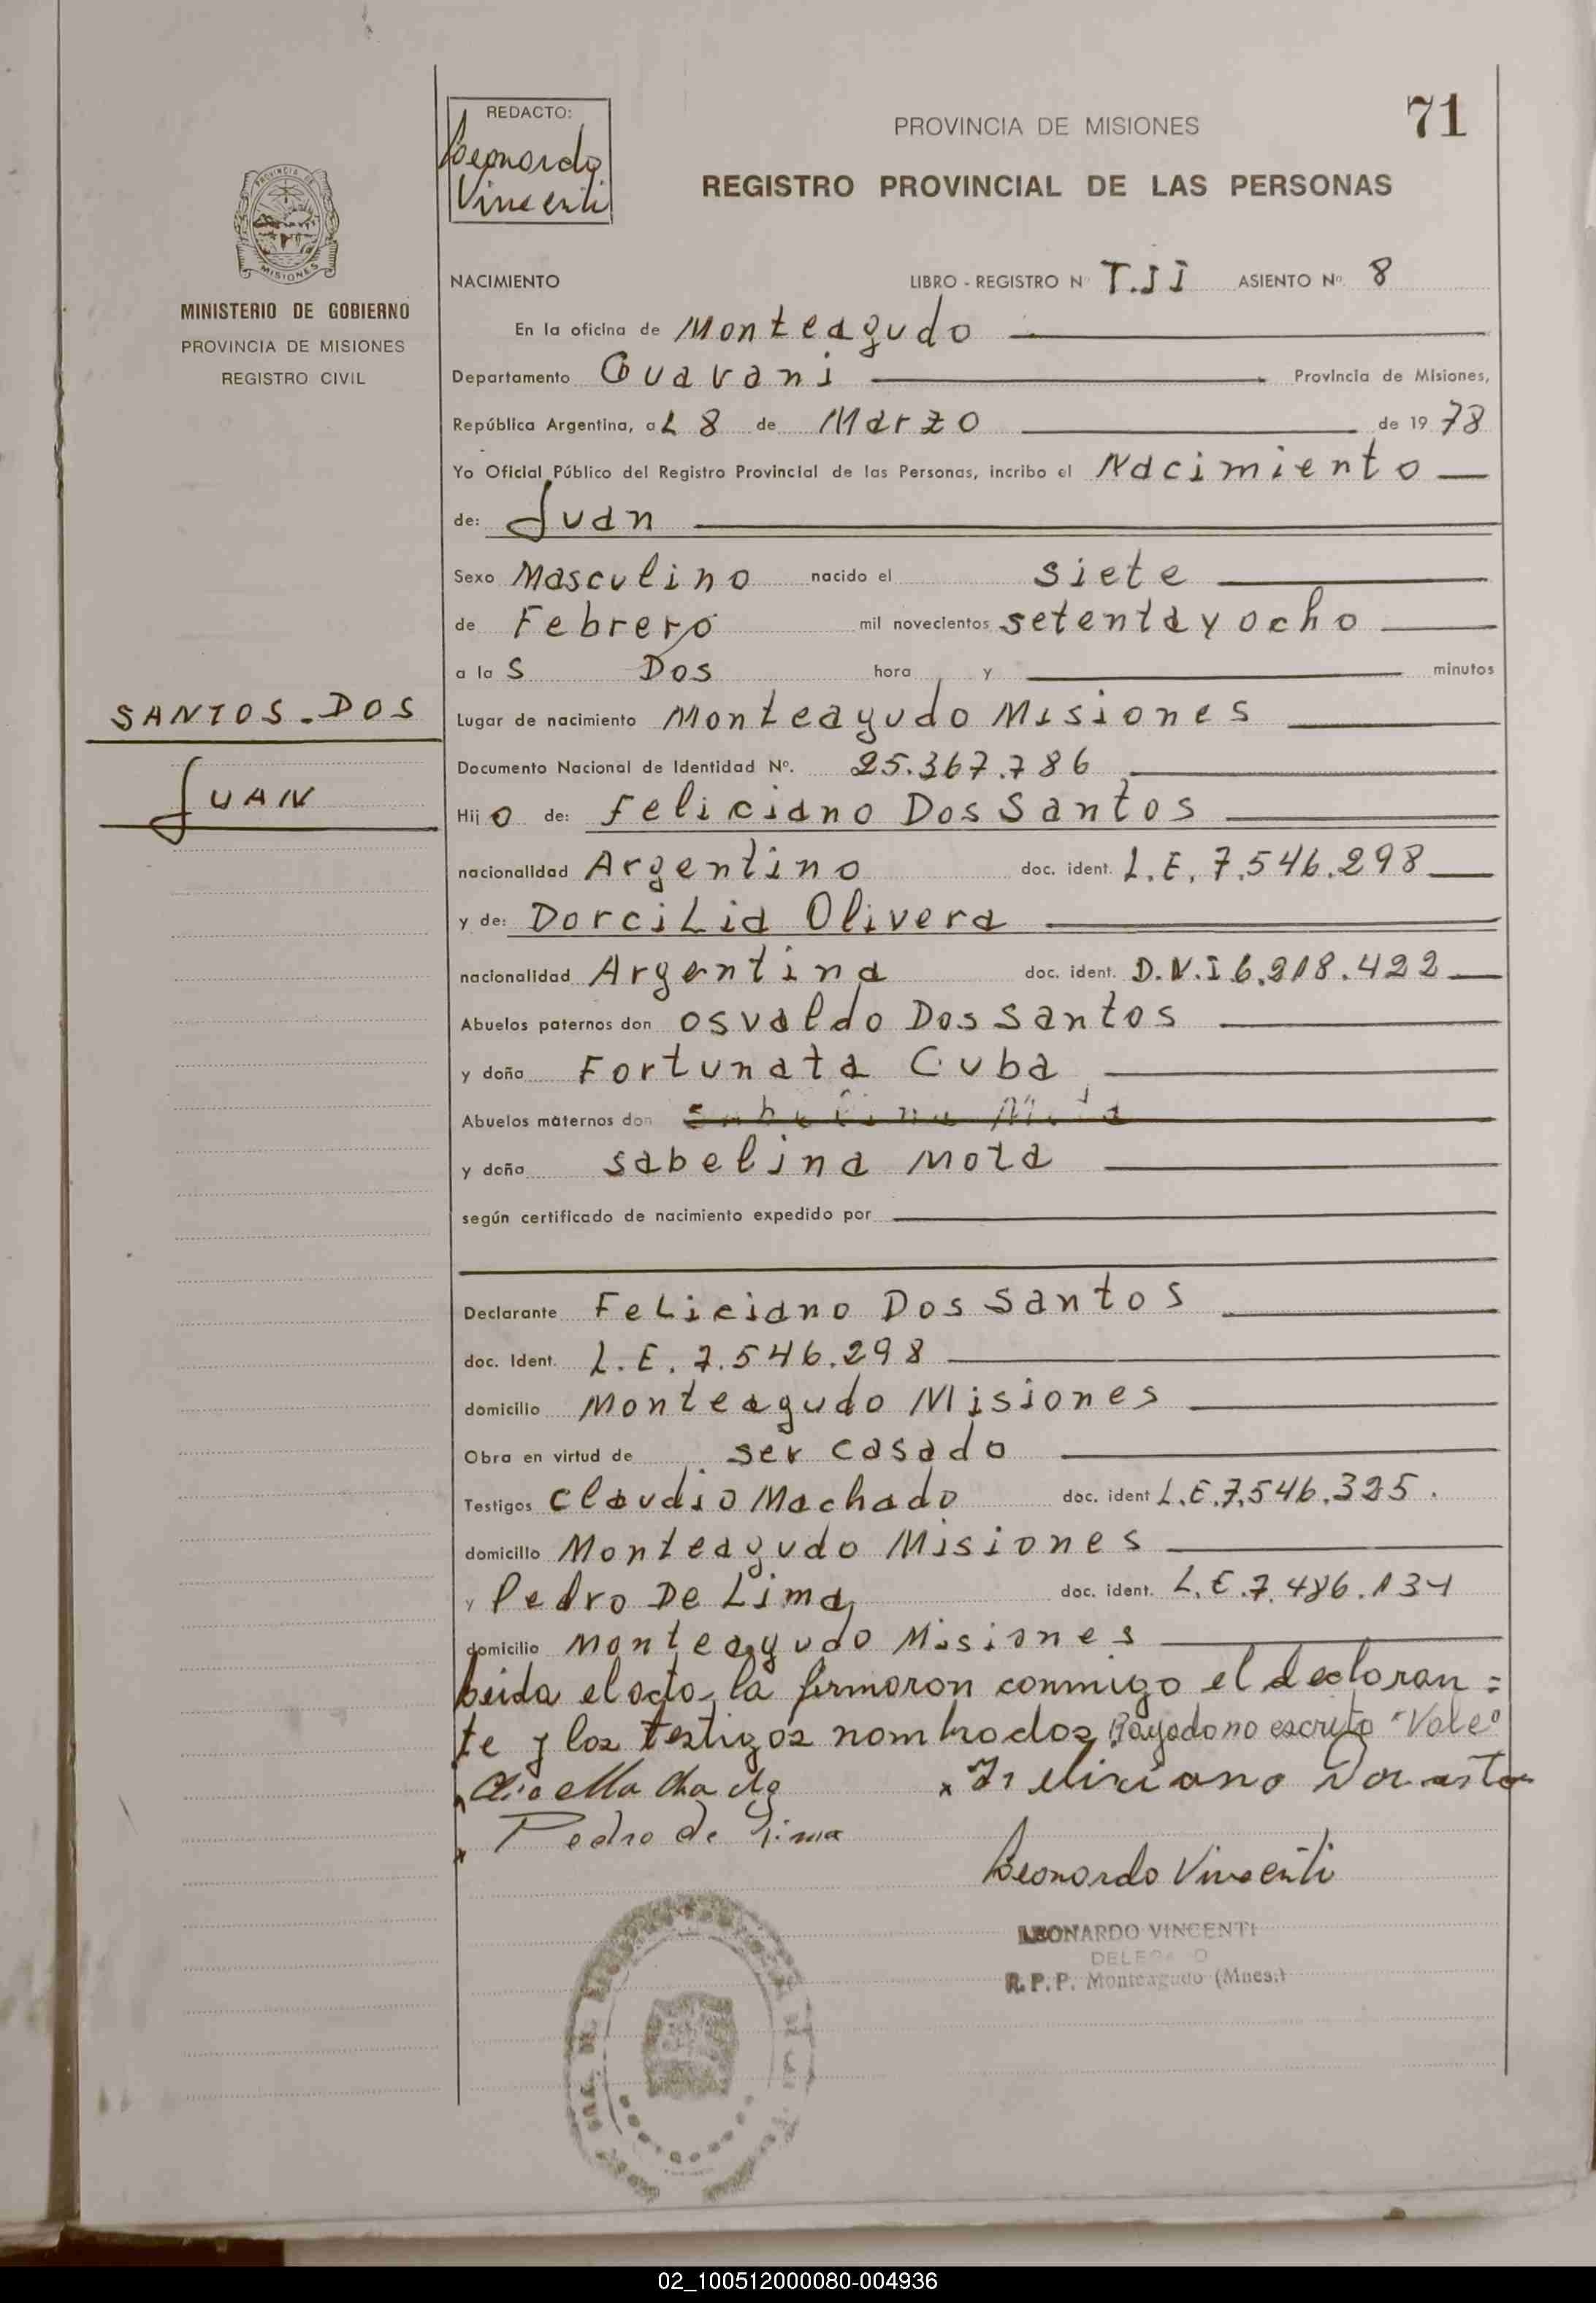 REDACTO:
Leonardo
Vincenti
PROVINCIA DE MISIONES
71
REGISTRO PROVINCIAL DE LAS PERSONAS
PROVINCIA DE
MISIONES
MINISTERIO DE GOBIERNO
PROVINCIA DE MISIONES
REGISTRO CIVIL
NACIMIENTO LIBRO - REGISTRO Nº T.II ASIENTO Nº 8
En la oficina de Monteagudo
Departamento Guarani Provincia de Misiones,
República Argentina, a L 8 de Marzo de 19 78
Yo Oficial Público del Registro Provincial de las Personas, incribo el Nacimiento
de: Juan
Sexo Masculino nacido el siete
de Febrero mil novecientos setenta y ocho
a la S Dos hora y minutos
SANTOS-DOS
JUAN
Lugar de nacimiento Monteagudo Misiones
Documento Nacional de Identidad Nº. 25.367.786
Hij o de: Feliciano Dos Santos
nacionalidad Argentino doc. ident. L.E. 7.546.298
y de: Dorcilia Olivera
nacionalidad Argentina doc. ident. D.N.I 6.218.422
Abuelos paternos don Osvaldo Dos Santos
y doña Fortunata Cuba
Abuelos maternos don Sabelina Mota
y doña Sabelina Mota
según certificado de nacimiento expedido por
Declarante Feliciano Dos Santos
doc. Ident. L.E. 7.546.298
domicilio Monteagudo Misiones
Obra en virtud de ser casado
Testigos Claudio Machado doc. ident L.E.7.546.325.
domicilio Monteagudo Misiones
y Pedro De Lima doc. ident. L.E.7.486.134
domicilio Monteagudo Misiones
Leida el acta, la firmaron conmigo el declaran=
te y los testigos nombrados, Rayado no escrito "Vale"
x Feliciano
x Pedro de Lima
Leonardo Vincenti
LEONARDO VINCENTI
DELEGADO
R. P. P. Monteagudo (Mnes.)
02_100512000080-004936